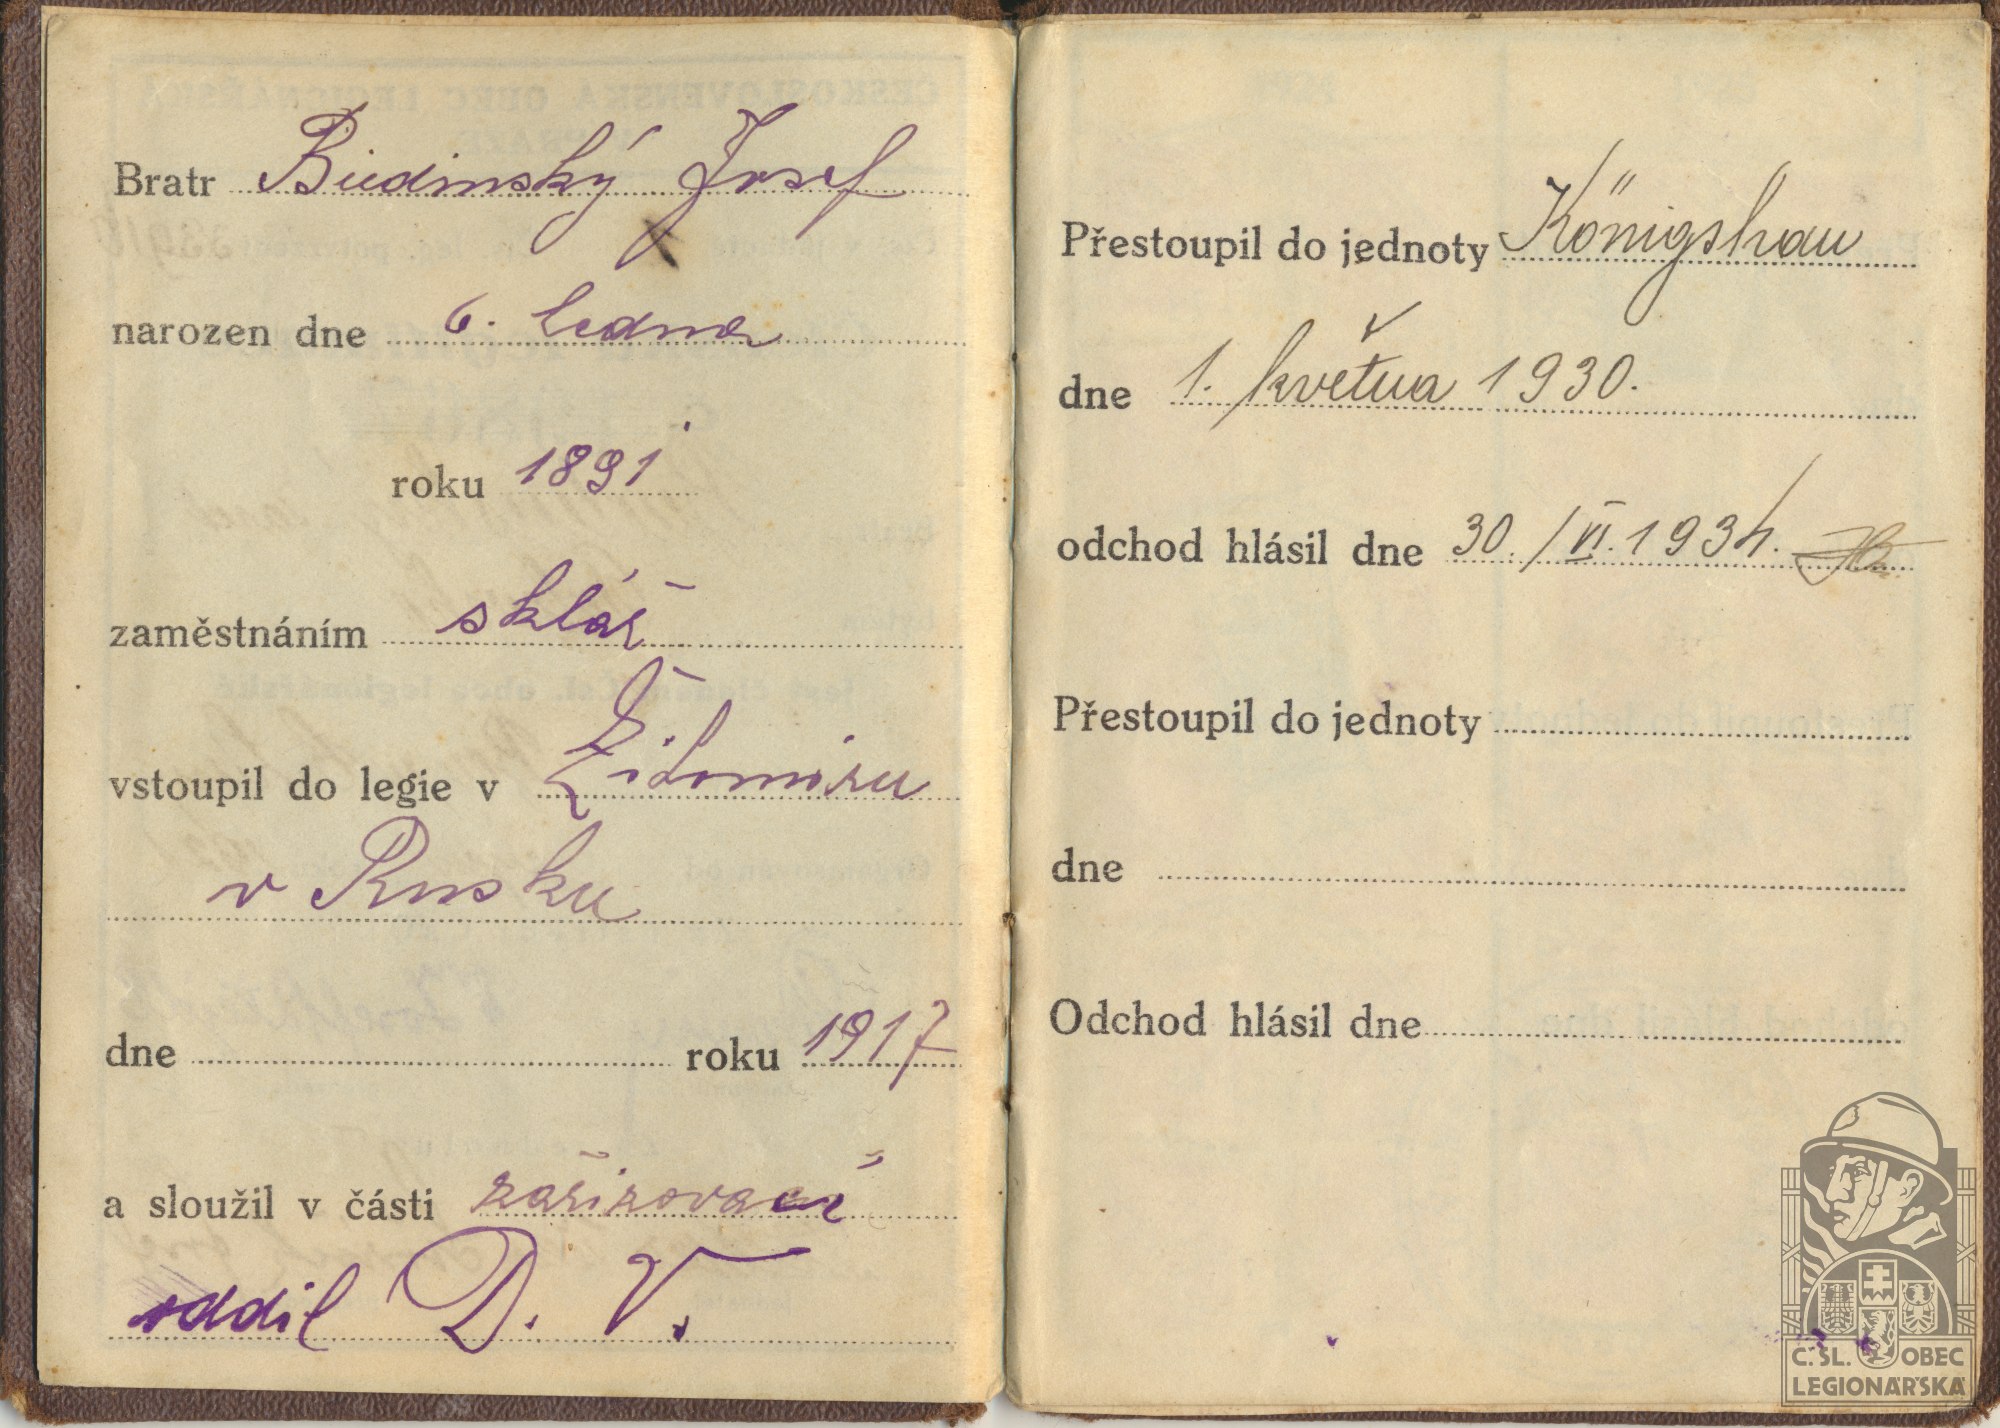 Bratr Budinský Josef
narozen dne 6. ledna
roku 1891
zaměstnáním sklář
vstoupil do legie v Žitomiru
v Rusku
dne roku 1917
a sloužil v části zařizovací
oddíl D. V.
Přestoupil do jednoty Königshau
dne 1. května 1930.
odchod hlásil dne 30./VI. 1934.
Přestoupil do jednoty
dne
Odchod hlásil dne
Č. SL. OBEC
LEGIONÁŘSKÁ